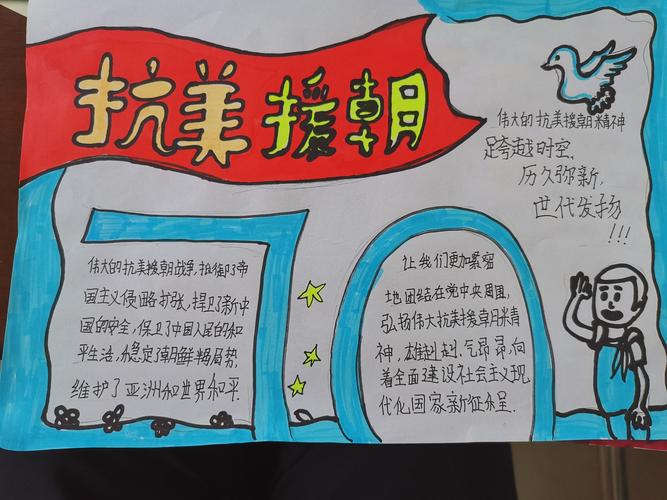 抗美援朝
伟大的抗美援朝精神
跨越时空、
历久弥新，
世代发扬
!!!
伟大的抗美援朝战争，抵御了帝
国主义侵略扩张，捍卫了新中
国的安全，保卫了中国人民的和
平生活，稳定了朝鲜半岛局势，
维护了亚洲和世界和平.
让我们更加紧密
地团结在党中央周围，
弘扬伟大抗美援朝精
神，雄赳赳、气昂昂，向
着全面建设社会主义现
代化国家新征程.